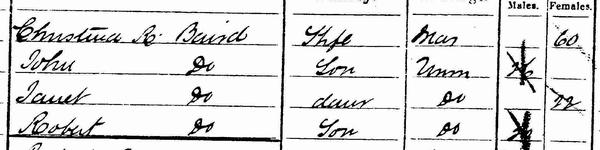 Males. Females.
Christina R. Baird Wife Mar 60
John Do Son Unm
Janet Do daur Do 22
Robert Do Son Do